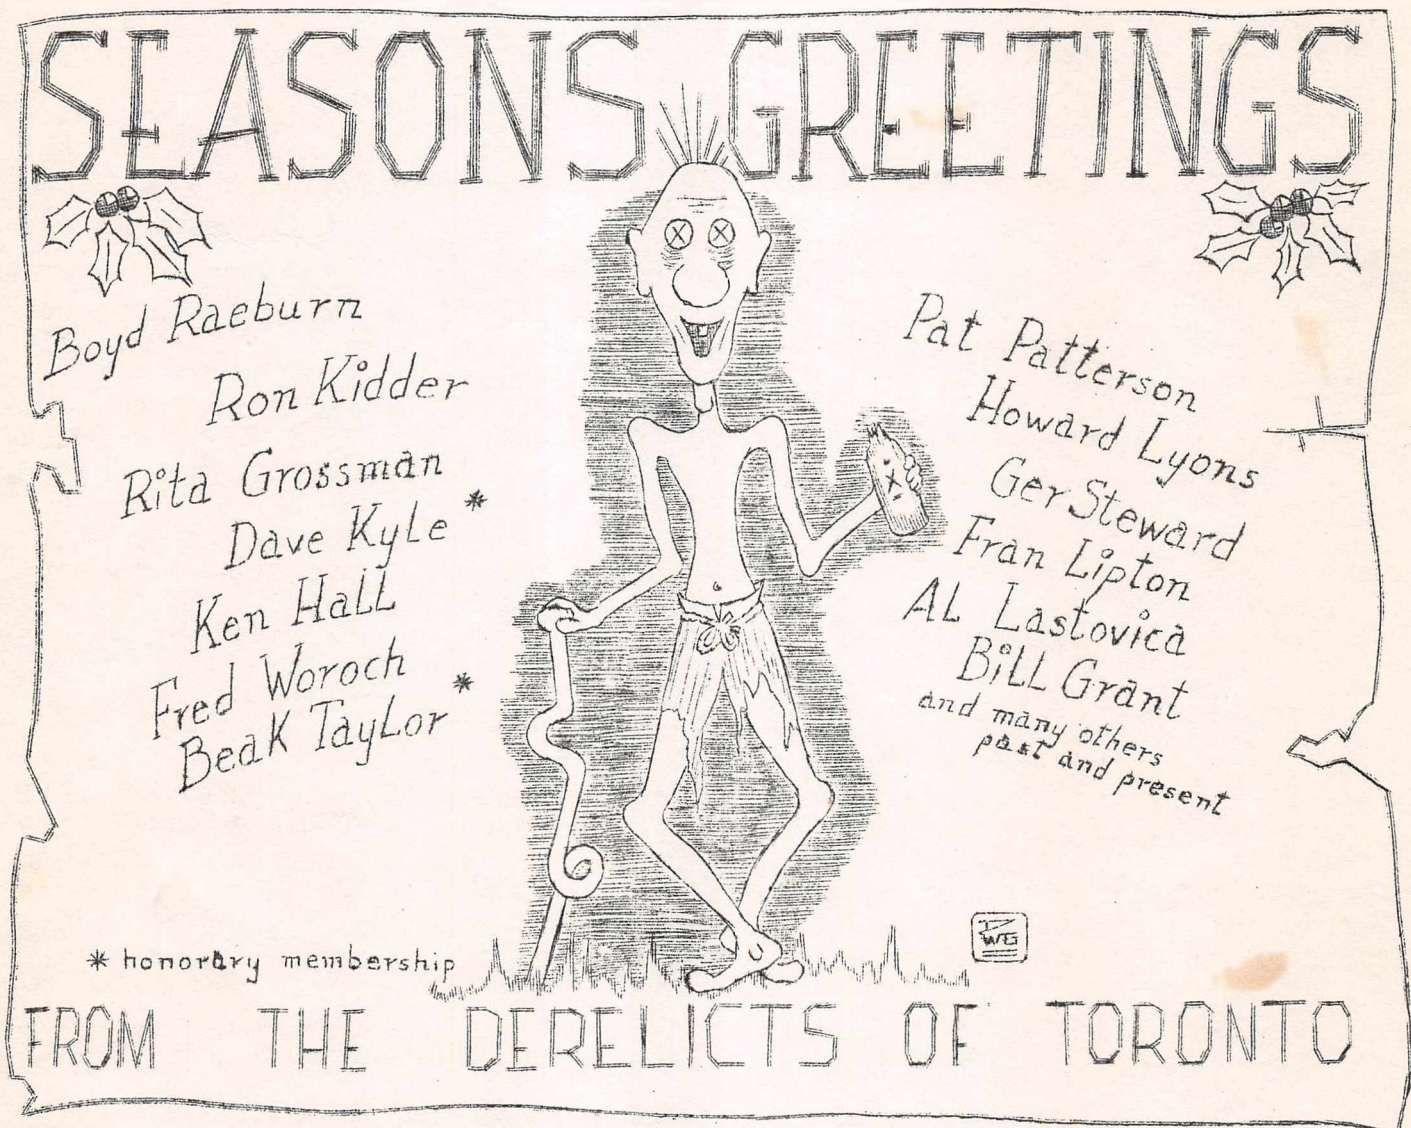 SEASONS GREETINGS
Boyd Raeburn
Ron Kidder
Rita Grossman
Dave Kyle *
Ken Hall
Fred Woroch
Beak Taylor *
Pat Patterson
Howard Lyons
Ger Steward
Fran Lipton
Al Lastovica
Bill Grant
and many others
past and present
X
WG
* honorary membership
FROM THE DERELICTS OF TORONTO